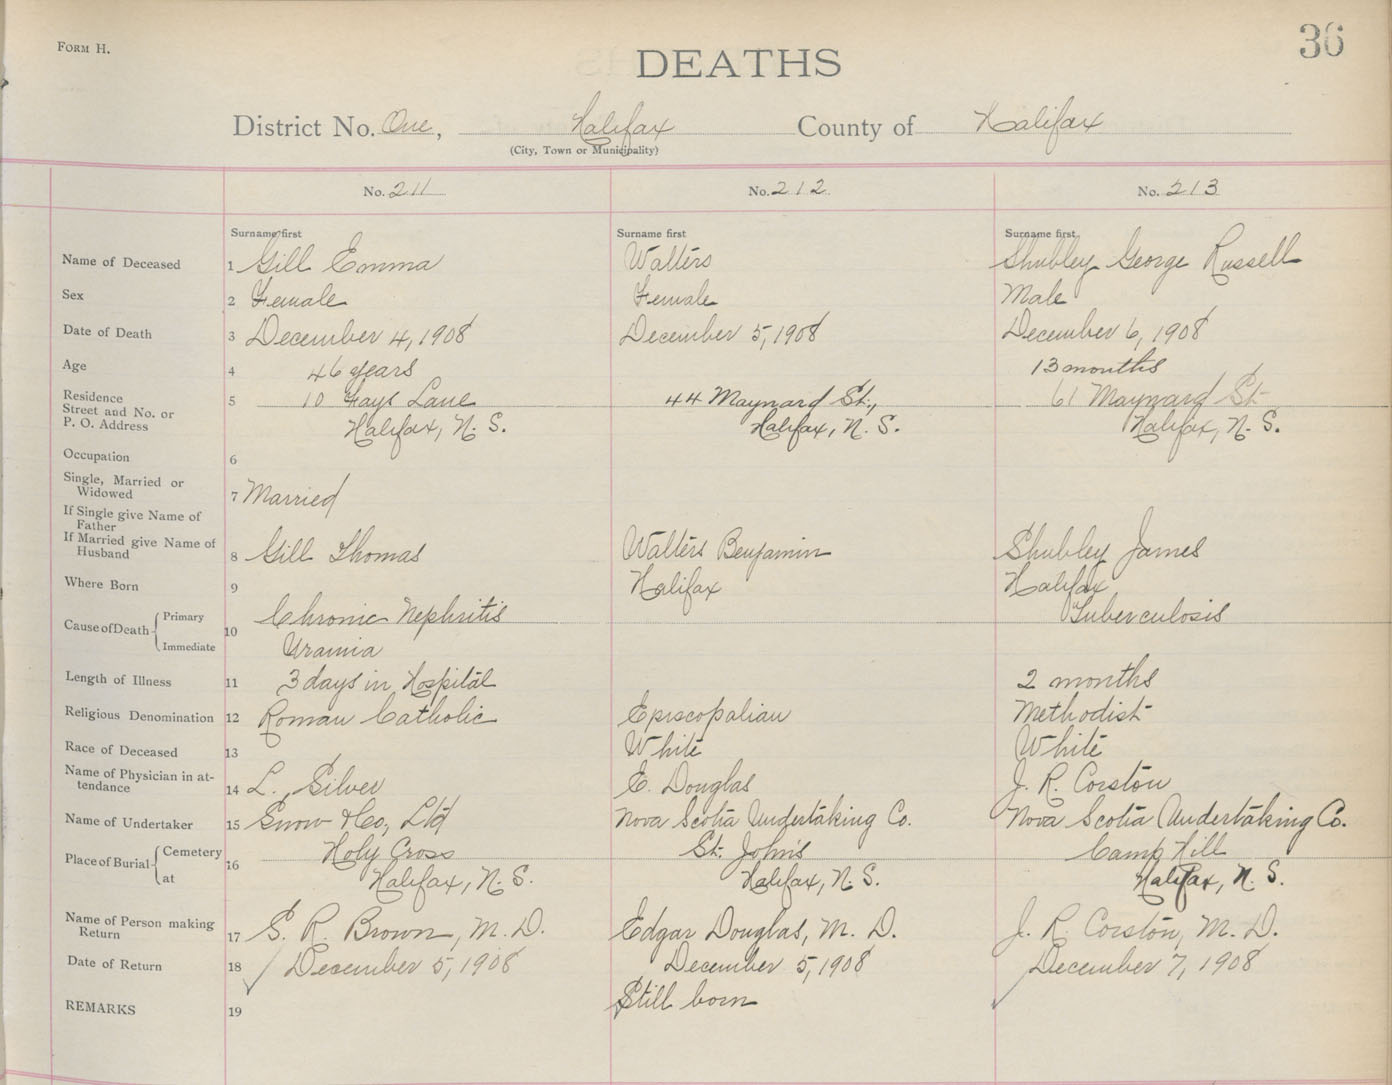 FORM H.
36
DEATHS
District No. One, Halifax County of Halifax
(City, Town or Municipality)
No. 211 No. 212 No. 213
Surname first Surname first Surname first
Name of Deceased 1 Gill Emma Walters Shubley George Russell
Sex 2 Female Female Male
Date of Death 3 December 4, 1908 December 5, 1908 December 6, 1908
Age 4 46 years 13 months
Residence
Street and No. or 5 10 Fays Lane 44 Maynard St., 61 Maynard St
P. O. Address Halifax, N. S. Halifax, N. S. Halifax, N. S.
Occupation 6
Single, Married or
Widowed 7 Married
If Single give Name of
Father
If Married give Name of
Husband 8 Gill Thomas Walters Benjamin Shubley James
Where Born 9 Halifax Halifax
Cause of Death Primary 10 Chronic Nephritis Tuberculosis
Immediate Uramia
Length of Illness 11 3 days in Hospital 2 months
Religious Denomination 12 Roman Catholic Episcopalian Methodist
Race of Deceased 13 White White
Name of Physician in at-
tendance 14 L. Silver E. Douglas J. R. Corston
Name of Undertaker 15 Snow & Co., Ltd Nova Scotia Undertaking Co. Nova Scotia Undertaking Co.
Place of Burial Cemetery 16 Holy Cross St. John's Camp Hill
at Halifax, N. S. Halifax, N. S. Halifax, N. S.
Name of Person making
Return 17 S. R. Brown, M. D. Edgar Douglas, M. D. J. R. Corston, M. D.
Date of Return 18 December 5, 1908 December 5, 1908 December 7, 1908
REMARKS 19 Still born